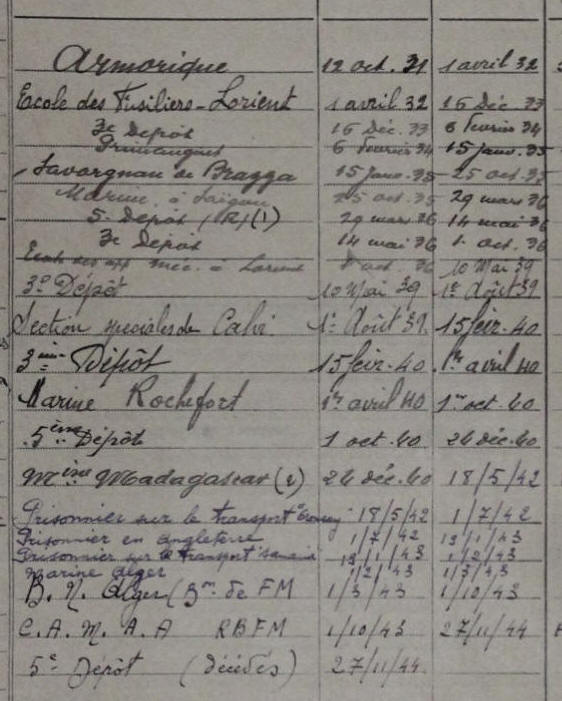 Armorique 12 oct. 31 1 avril 32
Ecole des Fusiliers-Lorient 1 avril 32 16 Déc 33
3e Depôt 16 Déc. 33 6 fevrier 34
Primauguet 6 fevrier 34 15 janv. 35
Savorgnan de Bragga 15 janv. 35 25 oct. 35
Marine à Saïgon 25 oct. 35 29 mars 36
5e Depôt (R)(1) 29 mars 36 14 mai 36
3e Depôt 14 mai 36 1 oct. 36
Ecole des app méc. à Lorient 1 oct. 36 10 Mai 39
3e Dépôt 10 Mai 39 1er Août 39
Section speciales de Calvi 1er Août 39. 15 fevr. 40
3ème Dépôt 15 fevr. 40 1er avril 40
Marine Rochefort 1er avril 40 1er oct. 40
5ème Dépôt 1 oct. 40 26 déc. 40
Mine Madagascar (2) 26 déc. 40 18/5/42
Prisonnier sur le transport 18/5/42 1/7/42
Prisonnier en Angleterre 1/7/42 13/1/43
Prisonnier sur le transport 13/1/43 1/2/43
Marine Alger 1/2/43 1/3/43
B. N. Alger (Bon de FM 1/3/43 1/10/43
C.A.M.A.A RBFM 1/10/43 27/11/44
5e Dépôt (décédés) 27/11/44